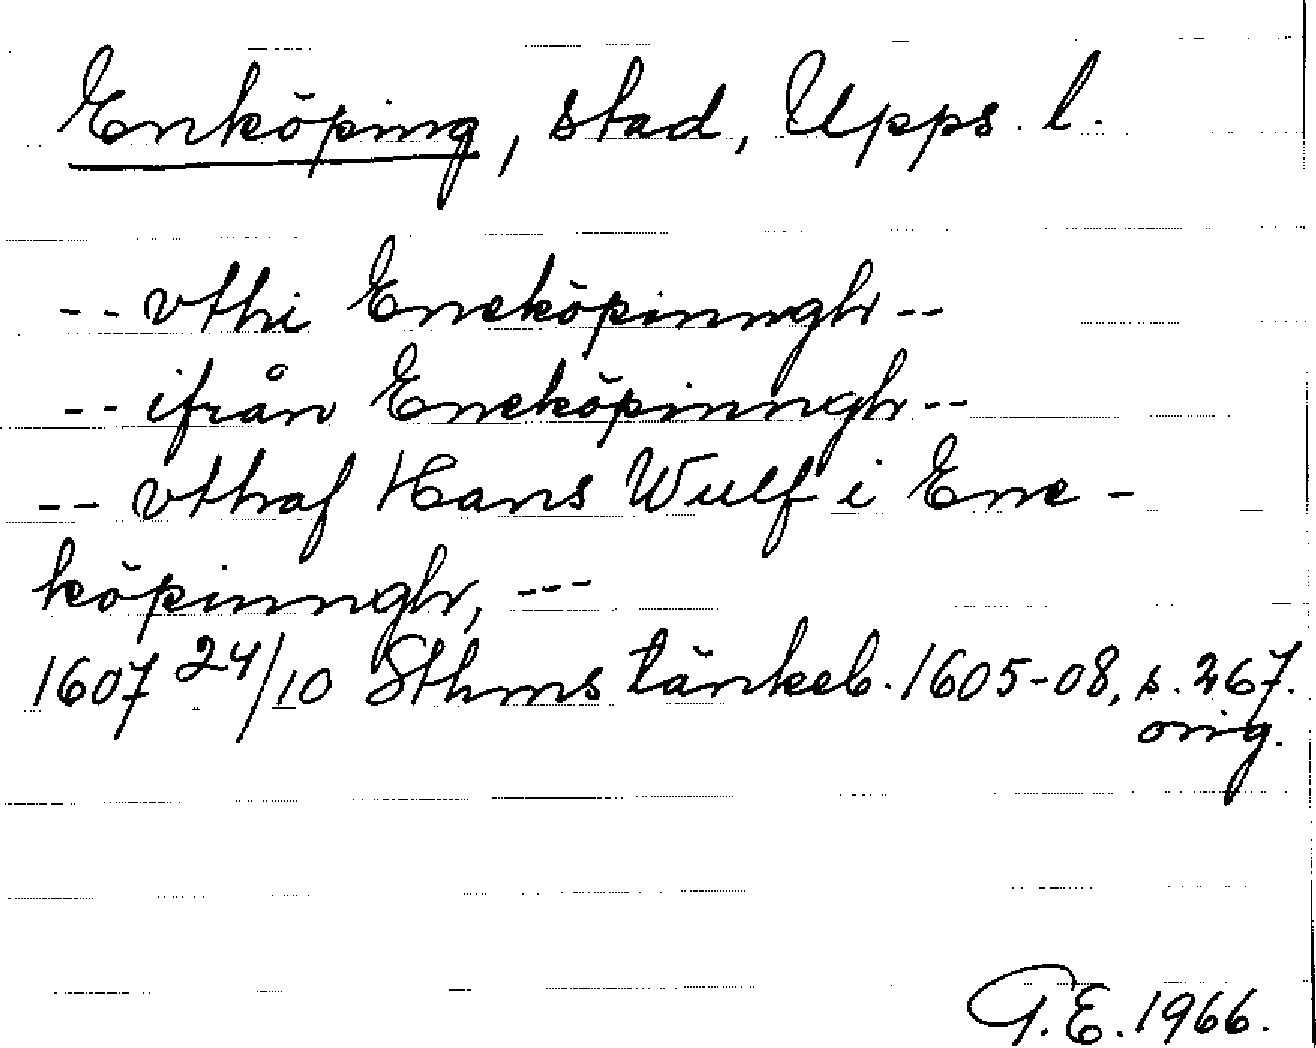 Enköping, stad, Upps. l.
-- vthi Eneköpinngh --
-- ifrån Eneköpinngh --
-- vthaf Hans Wulf i Ene-
köpinngh, ---
1607 24/10 Sthms tänkeb. 1605-08, s. 267.
orig.
G.E. 1966.